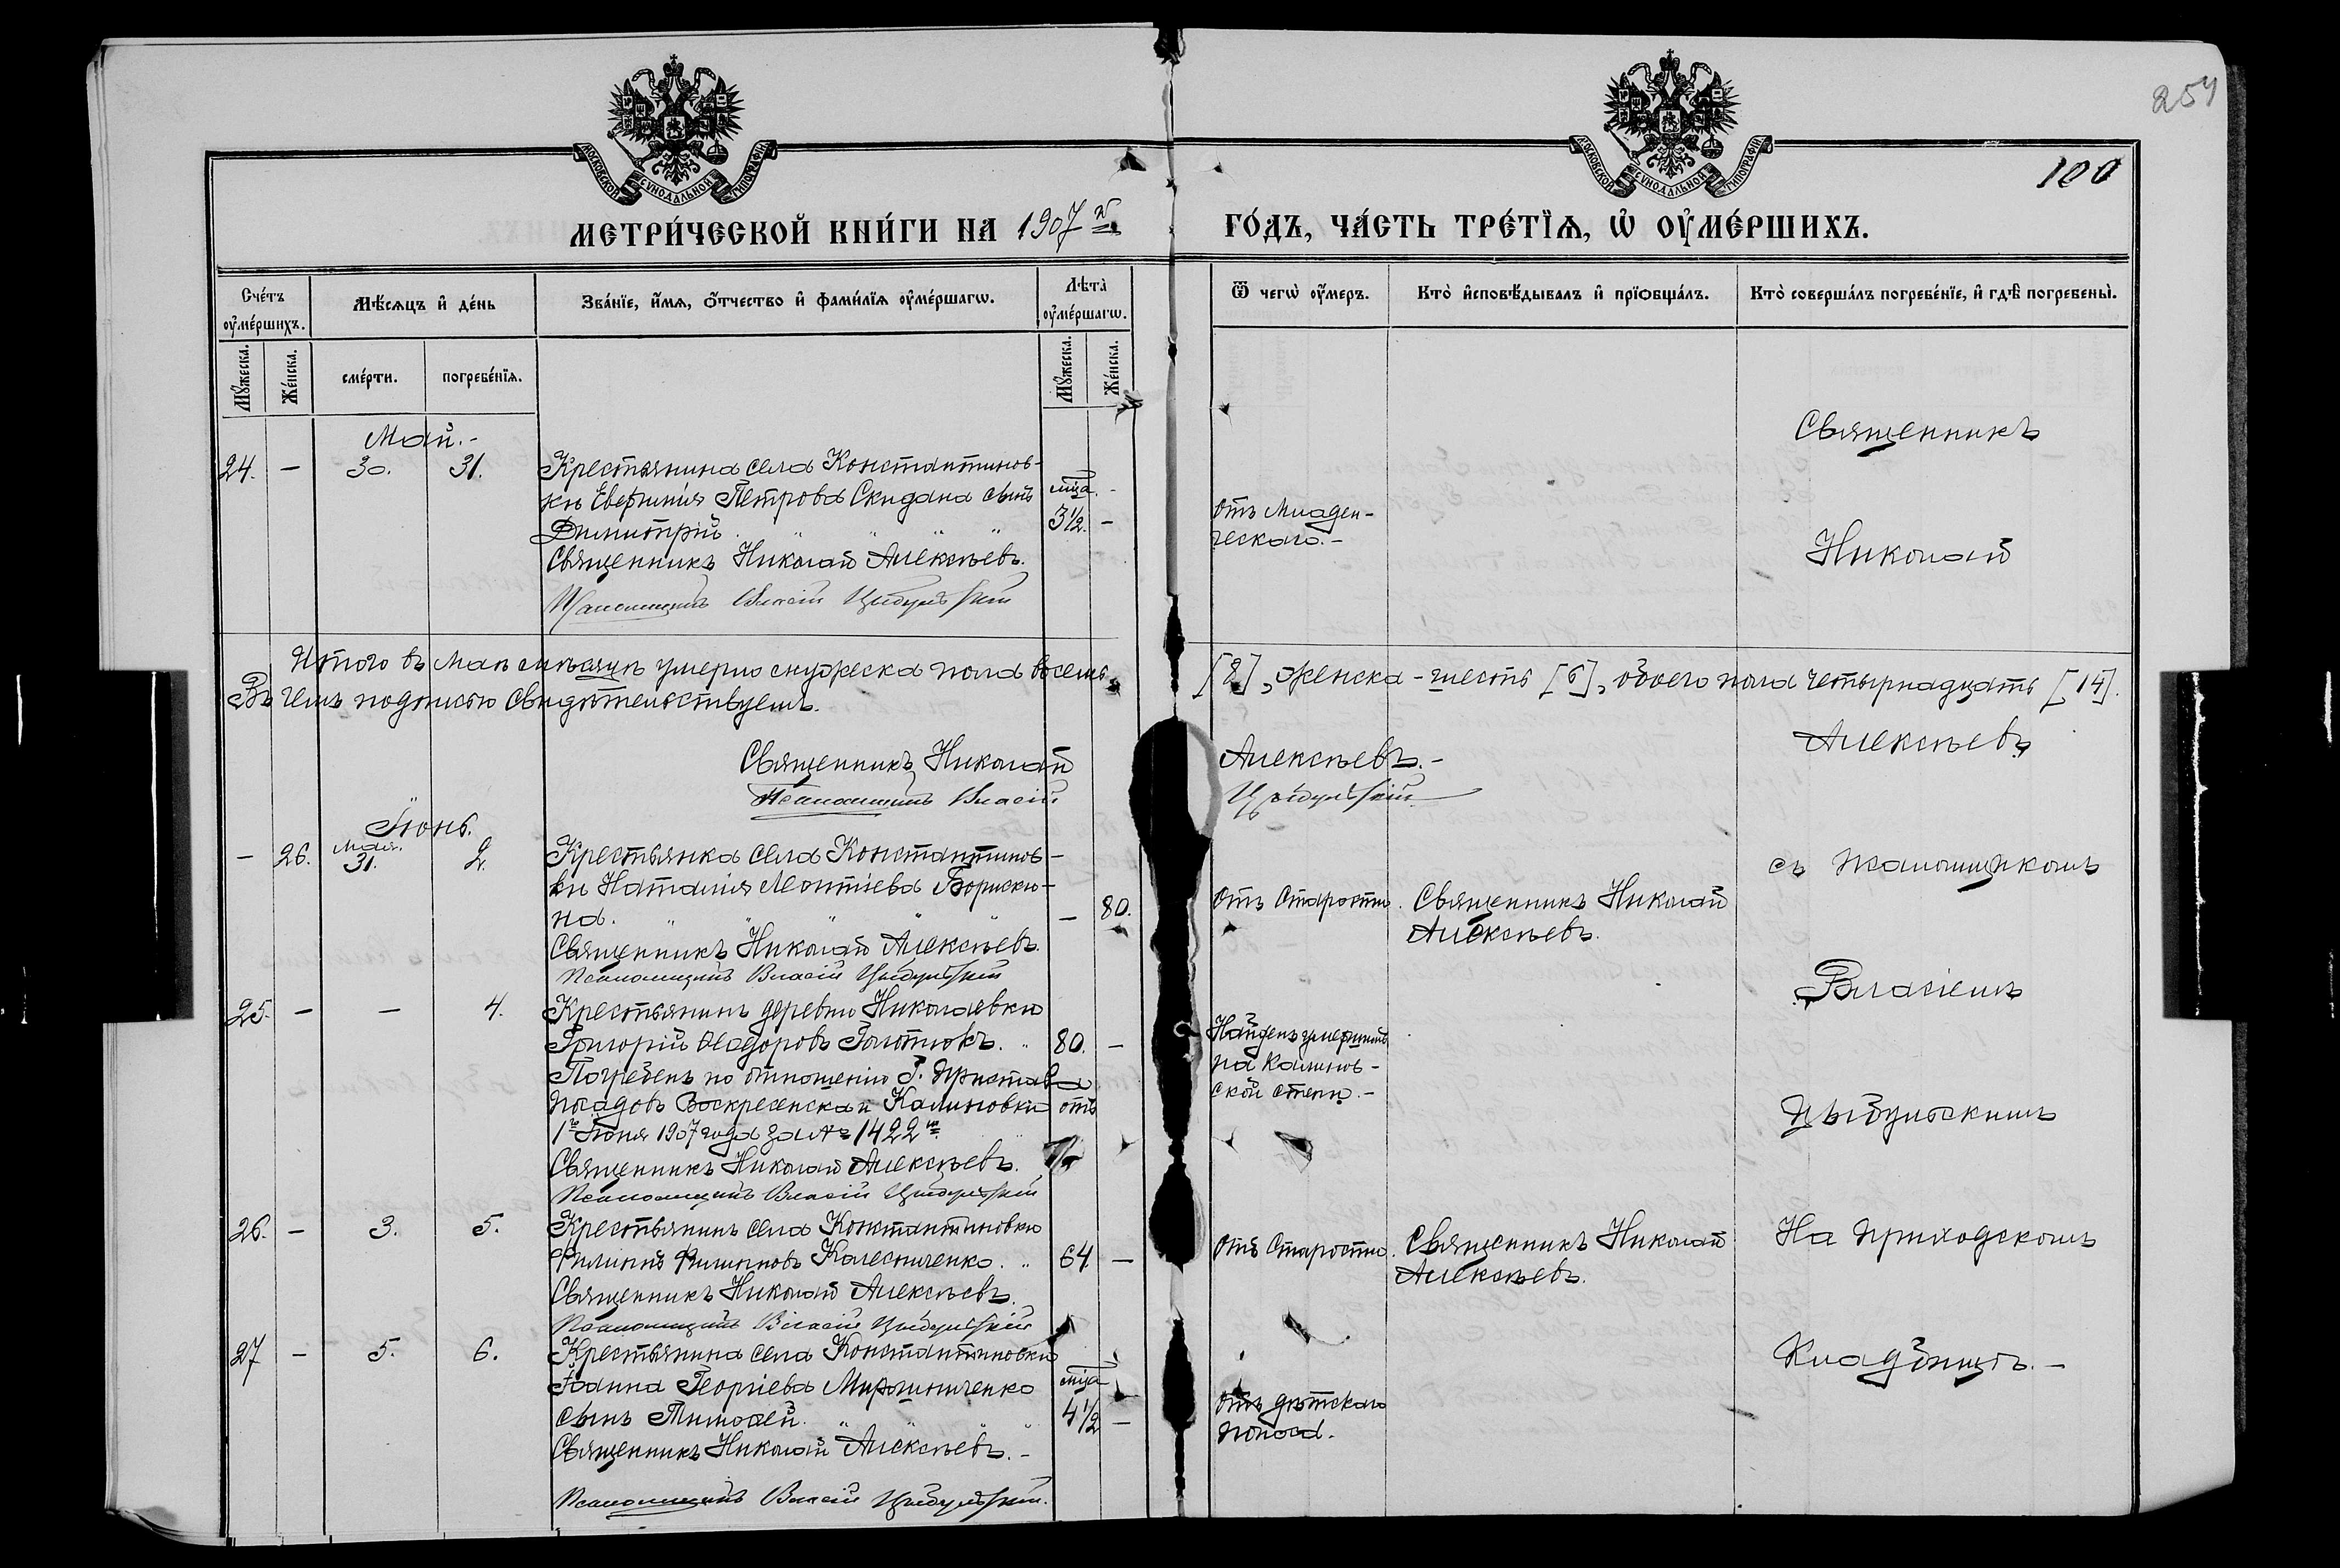 254
100
МОСКОВСКОЙ СѴНОДАЛЬНОЙ ТИПОГРАФІИ
МОСКОВСКОЙ СѴНОДАЛЬНОЙ ТИПОГРАФІИ
МЕТРИ́ЧЕСКОЙ КНИ́ГИ НА 1907 й
ГО́ДЪ, ЧА́СТЬ ТРЕ́ТЇѦ, Ѡ҆ ОУ҆МЕ́РШИХЪ.
Сче́тъ оу҆ме́ршихъ.
Мѣ́сѧцъ и҆ де́нь
Зва́нїе, и҆́мѧ, ѻ҆́тчество и҆ фами́лїѧ оу҆ме́ршагѡ.
Лѣта̀ оу҆ме́ршагѡ.
Ѿ чегѡ̀ оу҆́меръ.
Кто̀ и҆сповѣ́дывалъ и҆ прїѻбща́лъ.
Кто̀ соверша́лъ погребе́нїе, и҆ гдѣ̀ погребены̀.
Мꙋ́жеска.
Же́нска.
сме́рти.
погребе́нїѧ.
Мꙋ́жеска.
Же́нска.
Май.-
24. — 30. 31. Крестьянина села Константинов-
ки Евфимія Петрова Скидана сынъ мца.
Димитрій. " " " " 3½. —
Священникъ Николай Алексѣевъ.
Псаломщикъ Власій Цыбульскій
отъ Младен-
ческаго.-
Священникъ
Николай
Итого въ Маѣ мѣсяцѣ умерло мужеска пола восемь [8], женска - шесть [6], обоего пола четырнадцать [14].
Въ чемъ подписью свидѣтельствуемъ.
Священникъ Николай Алексѣевъ.-
Псаломщикъ Власій Цыбульскій
Алексѣевъ
Іюнь.
— 26. Мая. 31. 2. Крестьянка села Константинов-
ки Наталія Леонтіева Борискі-
на. " " " " — 80.
Священникъ Николай Алексѣевъ.
Псаломщикъ Власій Цыбульскій
Отъ Старости. Священникъ Николай
Алексѣевъ.
съ псаломщикомъ
Власіемъ
25. — — 4. Крестьянинъ деревни Николаевки
Григорій Ѳеодоровъ Золотюкъ. " 80. —
Погребенъ по отношенію Г. Пристава
посадовъ Воскресенска и Калиновки отъ
1го Іюня 1907 года за № 1422 м.
Священникъ Николай Алексѣевъ.
Псаломщикъ Власій Цыбульскій
Найденъ умершимъ
на Калинов-
ской степи.-
Цыбульскимъ
26. — 3. 5. Крестьянинъ села Константиновки
Филиппъ Филипповъ Колесниченко. " 64. —
Священникъ Николай Алексѣевъ.
Псаломщикъ Власій Цыбульскій
Отъ Старости. Священникъ Николай
Алексѣевъ.
На приходскомъ
27 — 5. 6. Крестьянина села Константиновки
Іоанна Георгіева Мирошниченко мца
сынъ Тимоѳей. " " " " 4½ —
Священникъ Николай Алексѣевъ.-
Псаломщикъ Власій Цыбульскій.
Отъ дѣтскаго
поноса.
Кладбищѣ.-